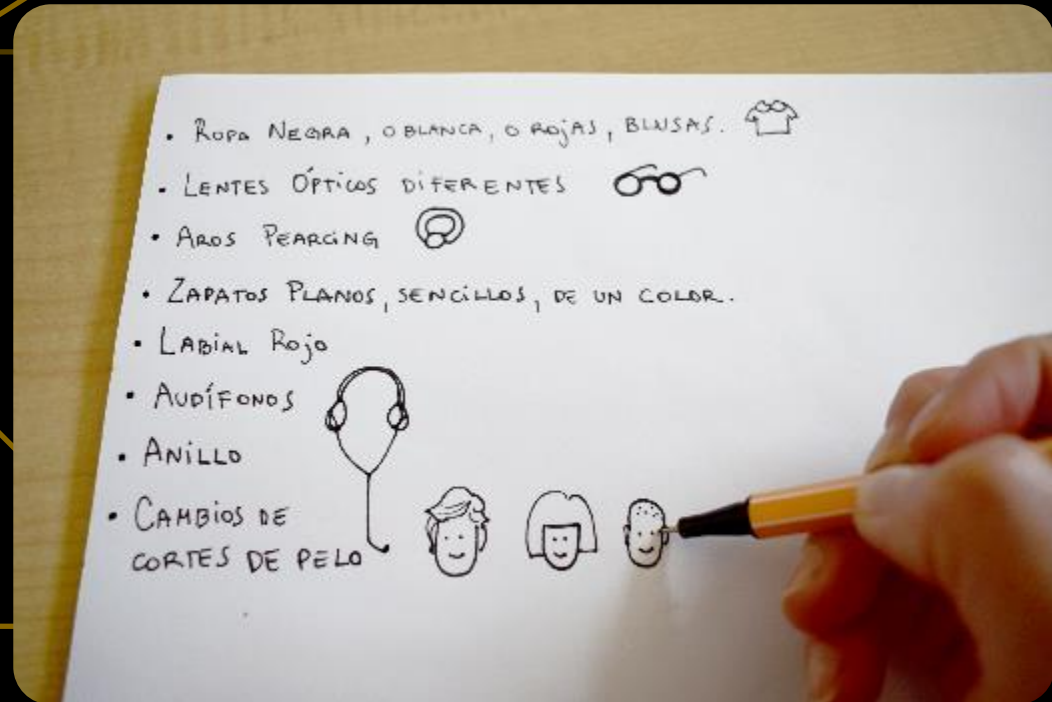 • Ropa Negra, o blanca, o rojas, blusas.
• Lentes Ópticos diferentes
• Aros Pearcing
• Zapatos Planos, sencillos, de un color.
• Labial Rojo
• Audífonos
• Anillo
• Cambios de
cortes de pelo